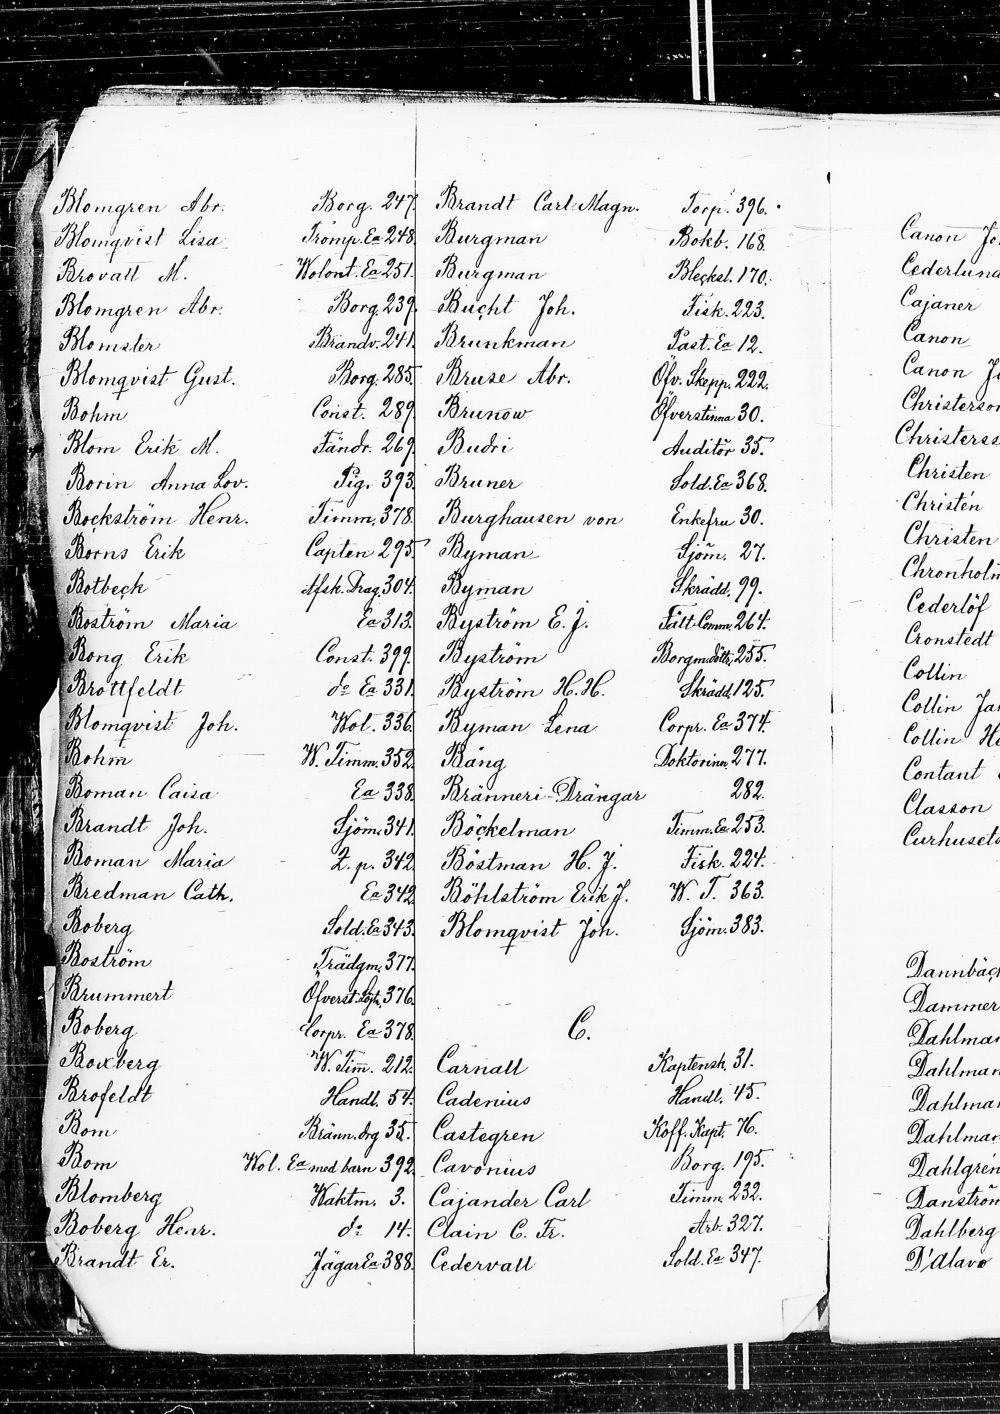 Blomgren Abr. Borg. 247.
Blomqvist Lisa Tromp. Ea 248.
Brovall M. Wolont. Ea 251.
Blomgren Abr. Borg. 239.
Blomster Brandv. 241.
Blomqvist Gust. Borg. 285.
Bohm Const. 289.
Blom Erik M. Fändr. 269.
Borin Anna Lov. Pig. 393.
Bockström Henr. Timm. 378.
Borns Erik Capten 295.
Botbeck Afsk. Drag. 304.
Boström Maria Ea 313.
Bong Erik Const. 399.
Brottfeldt do Ea 331.
Blomqvist Joh. Wol. 336.
Bohm W. Timm. 352.
Boman Caisa Ea 338.
Brandt Joh. Sjöm. 341.
Boman Maria L. p. 342.
Bredman Cath. Ea 342.
Boberg Sold. Ea 343.
Boström Trädgm. 377.
Brummert Öfverst. Löjtn. 376.
Boberg Corpr. Ea 378.
Boxberg W. Tim. 212.
Brofeldt Handl. 54.
Bom Bränn. drg 35.
Bom Wol. Ea med barn 392.
Blomberg Waktm. 3.
Boberg Henr. do 14.
Brandt Er. Jägar Ea 388.
Brandt Carl Magn. Torp. 396.
Burgman Bokb. 168.
Burgman Blecksl. 170.
Bucht Joh. Fisk. 223.
Brunkman Past. Ea 12.
Bruse Abr. Öfv. Skepp. 222.
Brunow Öfverstinna 30.
Budri Auditör 35.
Bruner Sold. Ea 368.
Burghausen von Enkefru 30.
Byman Sjöm. 27.
Byman Skrädd. 99.
Byström E. J. Fält-Comm. 264.
Byström Borgm. dottr. 255.
Byström H. H. Skrädd. 125.
Byman Lena Corpr. Ea 374.
Bång Doktorinn. 277.
Bränneri-Drängar 282.
Böckelman Timm. Ea 253.
Böstman H. J. Fisk. 224.
Böhlström Erik J. W. T. 363.
Blomqvist Joh. Sjöm. 383.
C.
Carnall Kaptensk. 31.
Cadenius Handl. 45.
Castegren Koff. Kapt. 76.
Cavonius Borg. 195.
Cajander Carl Timm. 232.
Clain C. Fr. Arb. 327.
Cedervall Sold. Ea 347.
Canon
Cederlund
Cajaner
Canon
Canon
Christerson
Christerss
Christen
Christén
Christen
Chronholm
Cederlöf
Cronstedt
Collin
Collin
Collin
Contant
Classon
Dannbäck
Dammer
Dahlman
Dahlman
Dahlman
Dahlman
Dahlgren
Danström
Dahlberg
D'Alavo